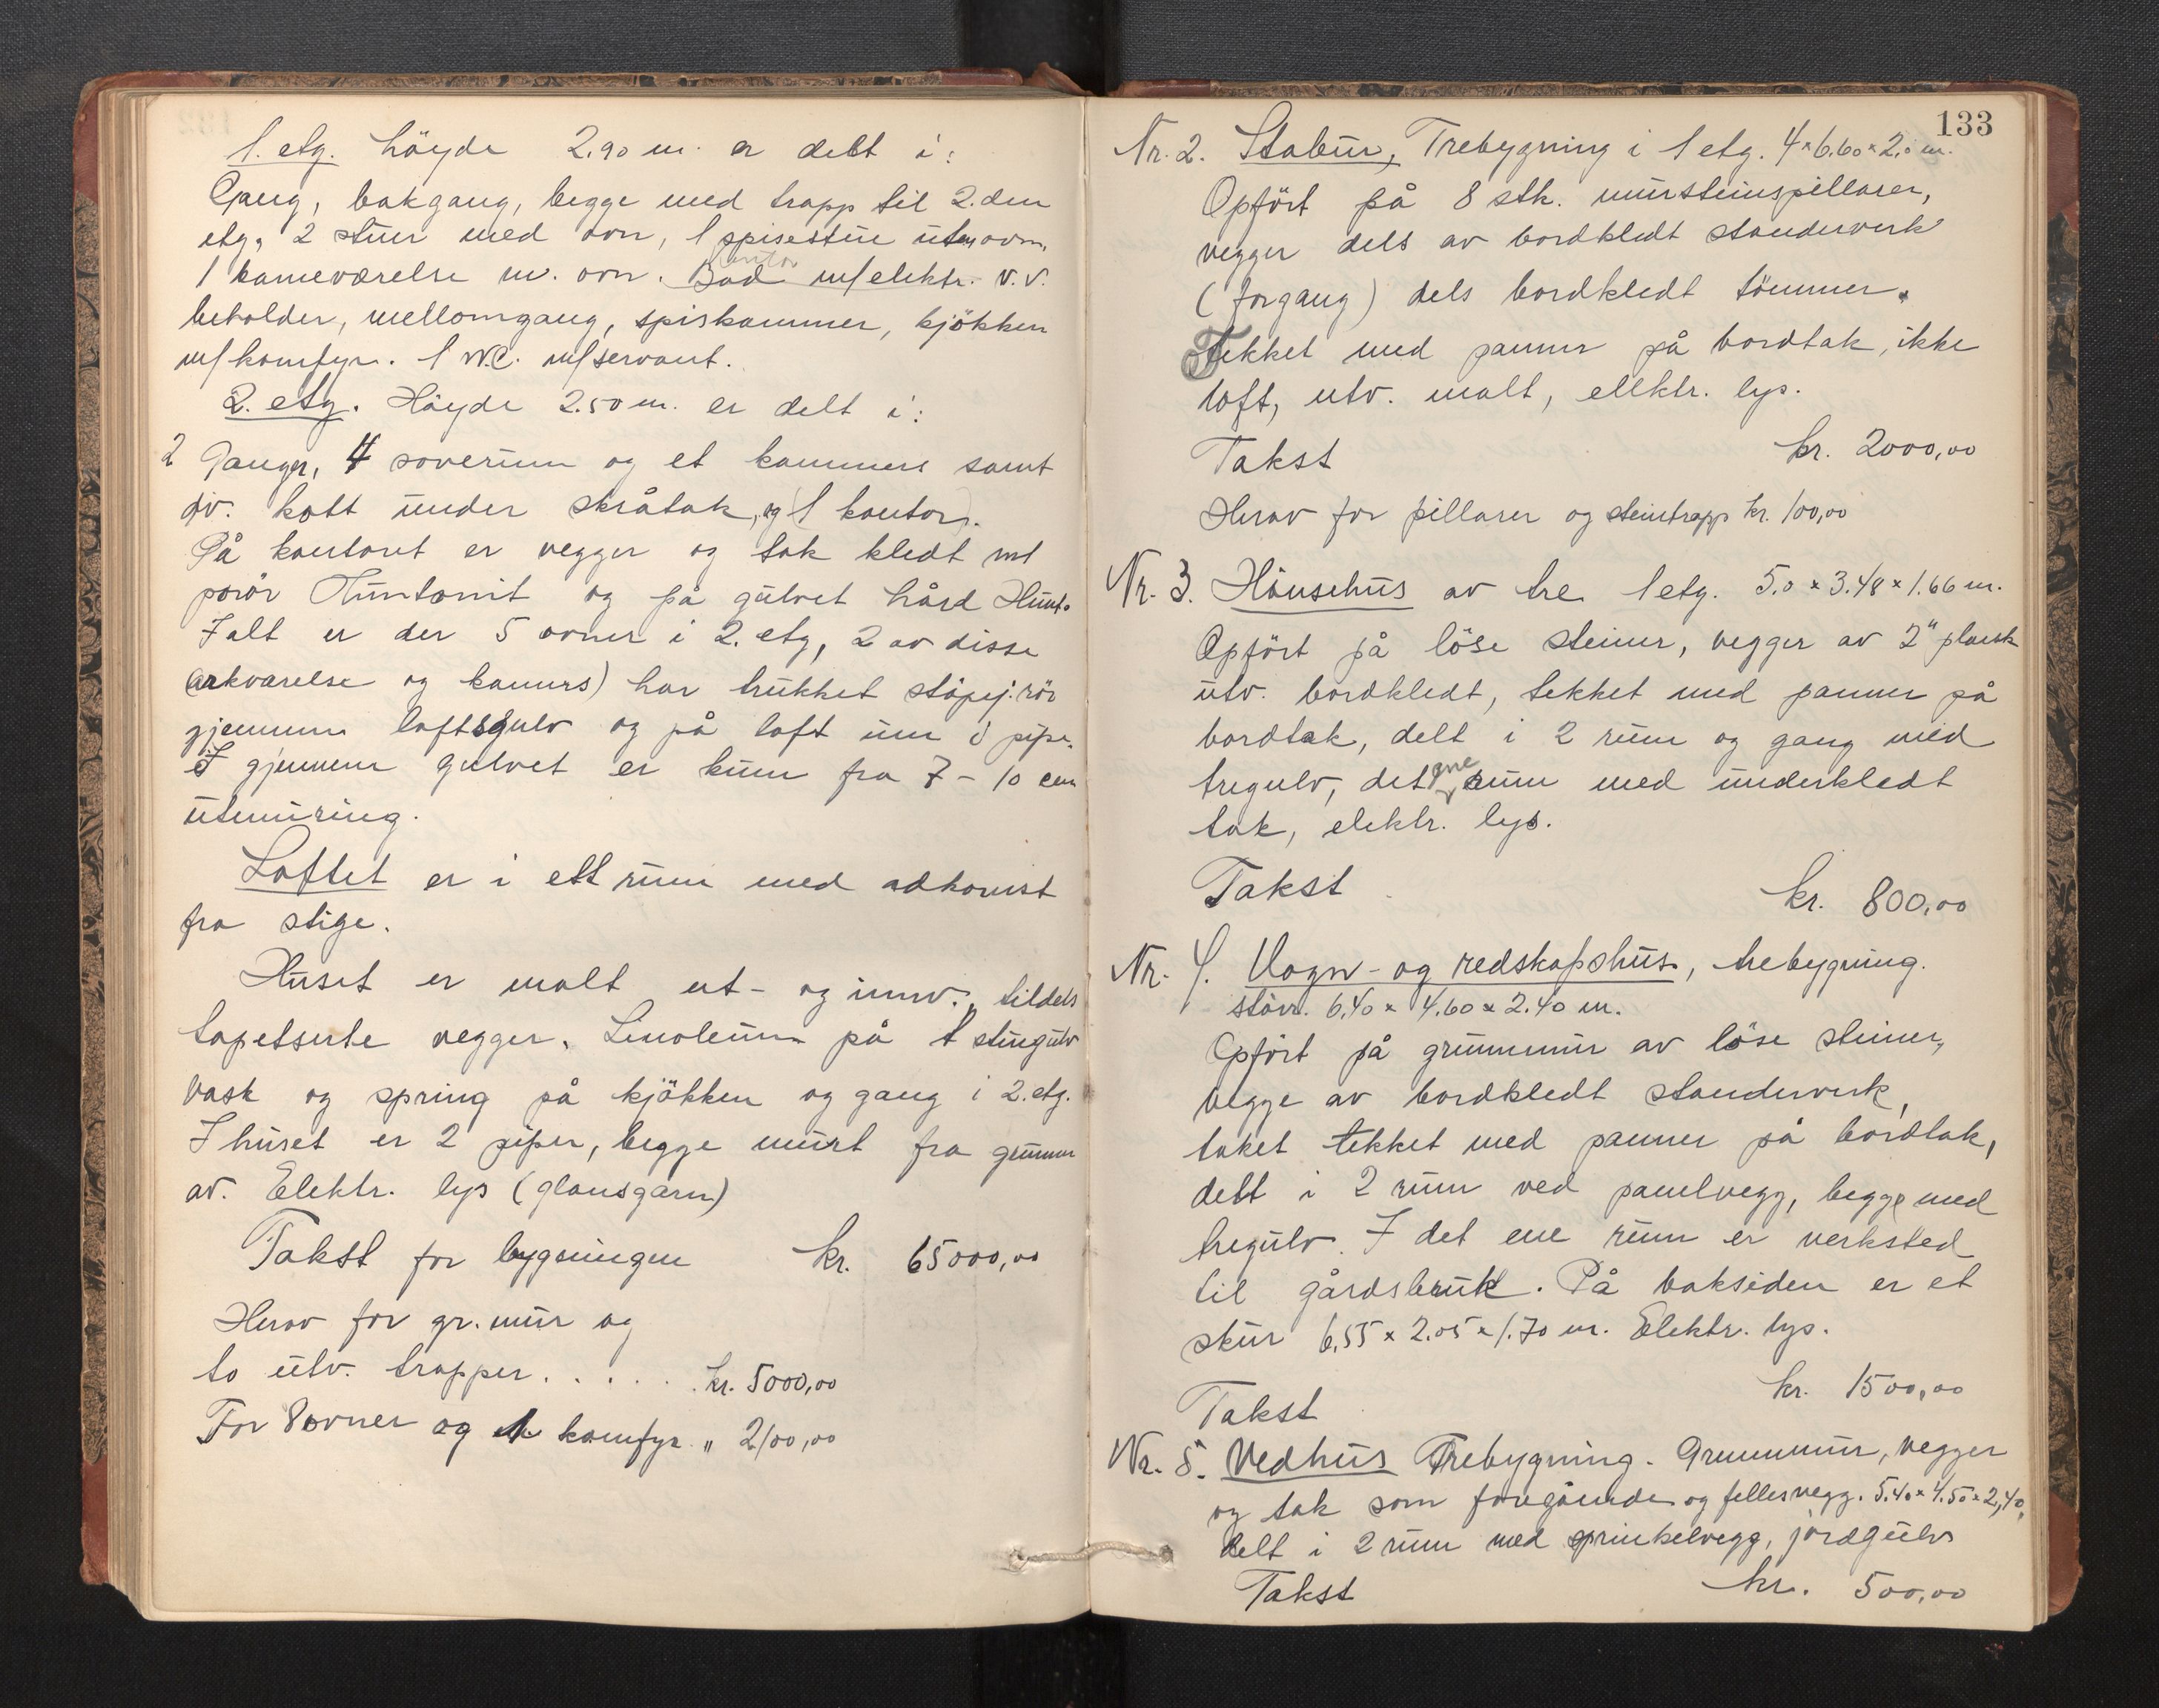 1. etg. höyde 2.90 m. er delt i:
Gang, bakgang, begge med trapp til 2. den
etg, 2 stuer med ovn, 1 spisestue uten ovn,
kontor
1 kameværelse m. ovn. Bad m/elektr. v.v.
beholder, mellomgang, spiskammer, kjökken
m/komfyr. 1 W.C. m/servant.
2. etg. Höyde 2.50 m. er delt i:
2 Ganger, 4 soverum og et kammers samt
div. kott under skråtak, og 1 kontor.
På kontoret er vegger og tak kledt mt
porör Huntonit og på gulvet hård Hunt.
I alt er der 5 ovner i 2. etg, 2 av disse
(arkværelse og kamrs) har trukket stöpej. rör
gjennem loftsgulv og på loft inn i pipe.
I gjennem gulvet er kun fra 7 - 10 cm
utmuring.
Loftet er i ett rum med adkomst
fra stige.
Huset er malt ut- og innv., tildels
tapetserte vegger. Linoleum på 1 stuegulv
Vask og spring på kjökken og gang i 2. etg.
I huset er 2 piper, begge murt fra grunnen
av. Elektr. lys (glansgarn)
Takst for bygningen kr. 65000,00
Herav for gr. mur og
to utv. trapper . . . . . kr. 5000,00
For 8 ovner og 1 komfyr " 2100,00
133
Nr. 2. Stabur, Trebygning i 1 etg. 4 × 6.60 × 2.0 m.
Opfört på 8 stk. mursteinspillarer,
vegger dels av bordkledt standerverk
(forgang) dels bordkledt tömmer.
Tekket med panner på bordtak, ikke
loft, utv. malt, ellktr. lys.
Takst kr. 2000,00
Herav for pillarer og steintrapp kr. 100,00
Nr. 3. Hönsehus av tre 1 etg. 5.0 × 3.48 × 1.66 m.
Opfört på löse steiner, vegger av 2" plank
utv. bordkledt, tekket med panner på
bordtak, delt i 2 rum og gang med
ene
tregulv, det rum med underkledt
tak, elektr. lys.
Takst kr. 800,00
Nr. 4. Vogn- og redskapshus, trebygning.
störr. 6.40 × 4.60 × 2.40 m.
Opfört på grunnmur av löse steiner,
vegge av bordkledt standerverk,
taket tekket med panner på bordtak,
delt i 2 rum ved panelvegg, begge med
tregulv. I det ene rum er verksted
til gårdsbruk. På baksiden er et
skur 6,55 × 2.05 × 1.70 m. Elektr. lys.
Takst kr. 1500,00
Nr. 5. Vedhus Trebygning. Grunnmur, vegger
og tak som foregående og fellesvegg. 5.40 × 4.50 × 2,40,
delt i 2 rum med sprinkelvegg, jordgulv
Takst kr. 500,00